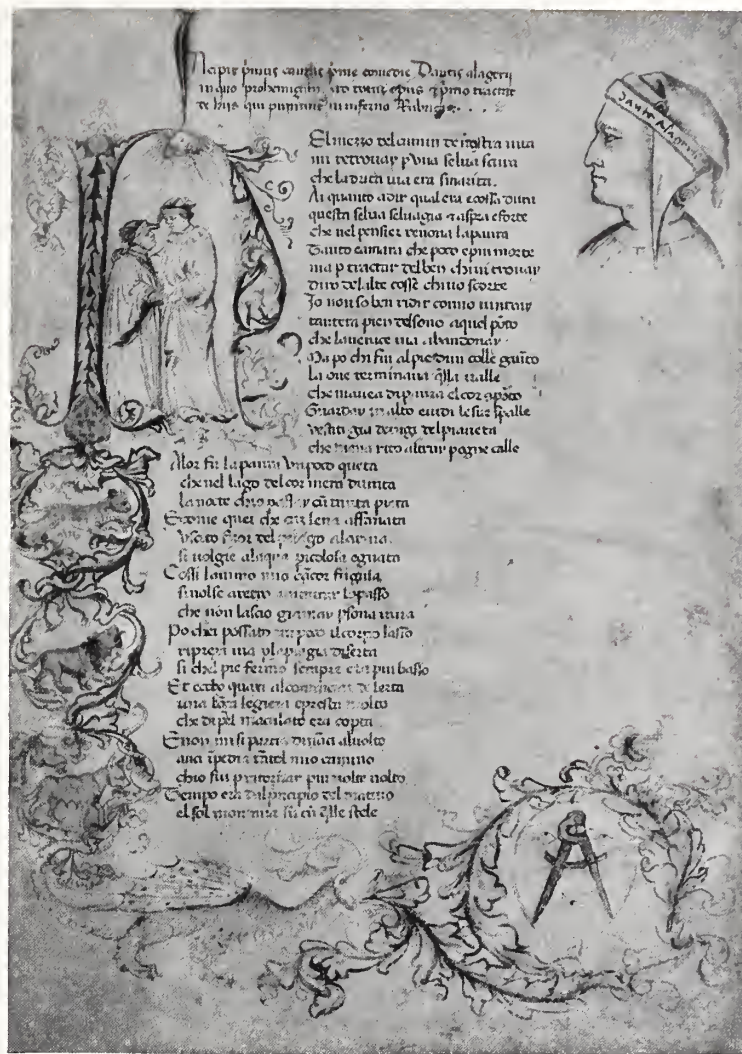 Incipit primus cantus prime comedie Dantis alagerii
in quo prohemigatur ad totum opus et primo tractat
de hiis qui puniuntur in inferno Rubrica
Dante Alagerii
El mezzo del camin de nostra uita
mi retrouai p una selua scura
che la drita uia era smarita.
Ai quanto adir qual era e cossa dura
questa selua seluagia & aspra e forte
che nel pensier renoua la paura
Tanto e amara che poco e piu morte
ma p tractar del ben chiui trouai
diro de lalte cosse chiuo scorte
Io non so ben ridir commo intrai
tantera pien del sono a quel pōto
che la uerace uia abandonai
Ma po chi fui al pie dun colle gūito
La oue terminaua q̄lla ualle
che mauea di paura el cor apōto
Guardai in alto e uidi le sue spalle
Vestiti gia de ragi del pianeta
che mena rito altrui p ogne calle
Alor fu la paura un poco queta
che nel lago del cor mera durata
la nocte chio passai cū tanta pieta
E come quei che cū lena affanata
Vscito fuor del pelago ala riua
si uolgie alaqua picolosa e guata
Cossi lanimo mio cācor fugiua
si uolse aretro a mirar lo passo
che non lascio gia mai psona uiua
Po chei possato un poco il corpo lasso
ripresi uia p la piagia diserta
si chel pie fermo sempre era piu basso
Et ecco quasi al cominciar de lerta
una lōza legiera e presta molto
che di pel maculato era copta
E non mi si partia dināci al uolto
anci īpedia tātol mio camino
chio fui p ritornar piu uolte uolto
Tempo era dal principio del matino
el sol montaua sū cū q̄lle stele